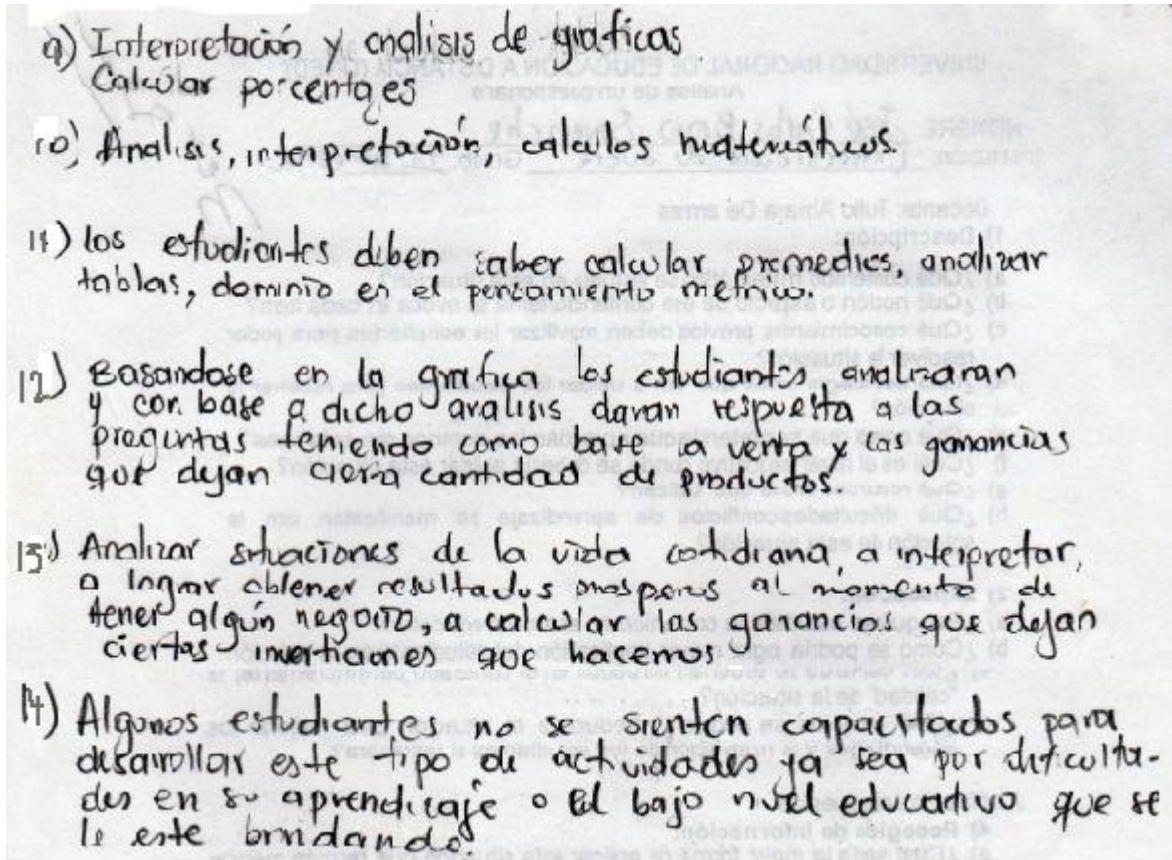 9) Interpretación y analisis de graficas
Calcular porcentajes
10) Analisis, interpretación, calculos matemáticos.
11) los estudiantes deben saber calcular promedios, analizar
tablas, dominio en el pensamiento metrico.
12) Basandose en la grafica los estudiantes analizaran
y con base a dicho analisis daran respuesta a las
preguntas teniendo como base la venta y las ganancias
que dejan cierta cantidad de productos.
13) Analizar situaciones de la vida cotidiana, a interpretar,
a lograr obtener resultados prosperos al momento de
tener algún negocio, a calcular las ganancias que dejan
ciertas inverticiones que hacemos
14) Algunos estudiantes no se sienten capacitados para
desarrollar este tipo de actividades ya sea por dificulta-
des en su aprendicaje o el bajo nivel educativo que se
le este brindando.